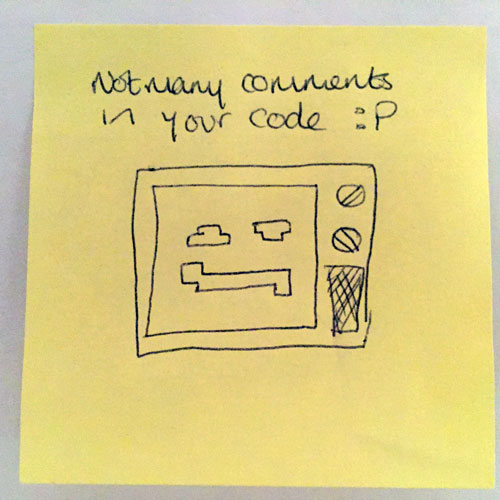 Not many comments
in your code :P